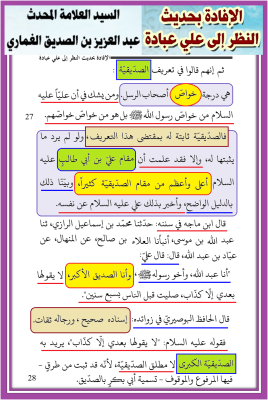 الإفادة بحديث
النظر إلى علي عبادة
السيد العلامة المحدث
عبد العزيز بن الصديق الغماري
الإفادة بحديث النظر إلى علي عبادة
ثم إنهم قالوا في تعريف الصديقية:
هي درجة خواص أصحاب الرسل. ومن يشك في أن علياً عليه
السلام من خواص رسول الله ﷺ بل هو من خواص خواصهم.
27
فالصديقية ثابتة له بمقتضى هذا التعريف، ولو لم يرد ما
يثبتها له، وإلا فقد علمت أن مقام علي بن أبي طالب عليه
السلام أعلى وأعظم من مقام الصديقية كثيراً، وبينا ذلك
بالدليل الواضح، وأخبر بذلك علي عليه السلام عن نفسه.
قال ابن ماجه في سننه: حدثنا محمد بن إسماعيل الرازي، ثنا
عبد الله بن موسى، أنبأنا العلاء بن صالح، عن المنهال، عن
عباد بن عبد الله، قال: قال علي:
"أنا عبد الله، وأخو رسوله ﷺ، وأنا الصديق الأكبر، لا يقولها
بعدي إلا كذاب، صليت قبل الناس بسبع سنين".
قال الحافظ البوصيري في زوائده: إسناده صحيح، ورجاله ثقات.
فقوله عليه السلام: "لا يقولها بعدي إلا كذاب"، يريد به
الصديقية الكبرى لا مطلق الصديقية، لأنه قد ثبت من طرق -
فيها المرفوع والموقوف - تسمية أبي بكر بالصديق.
28